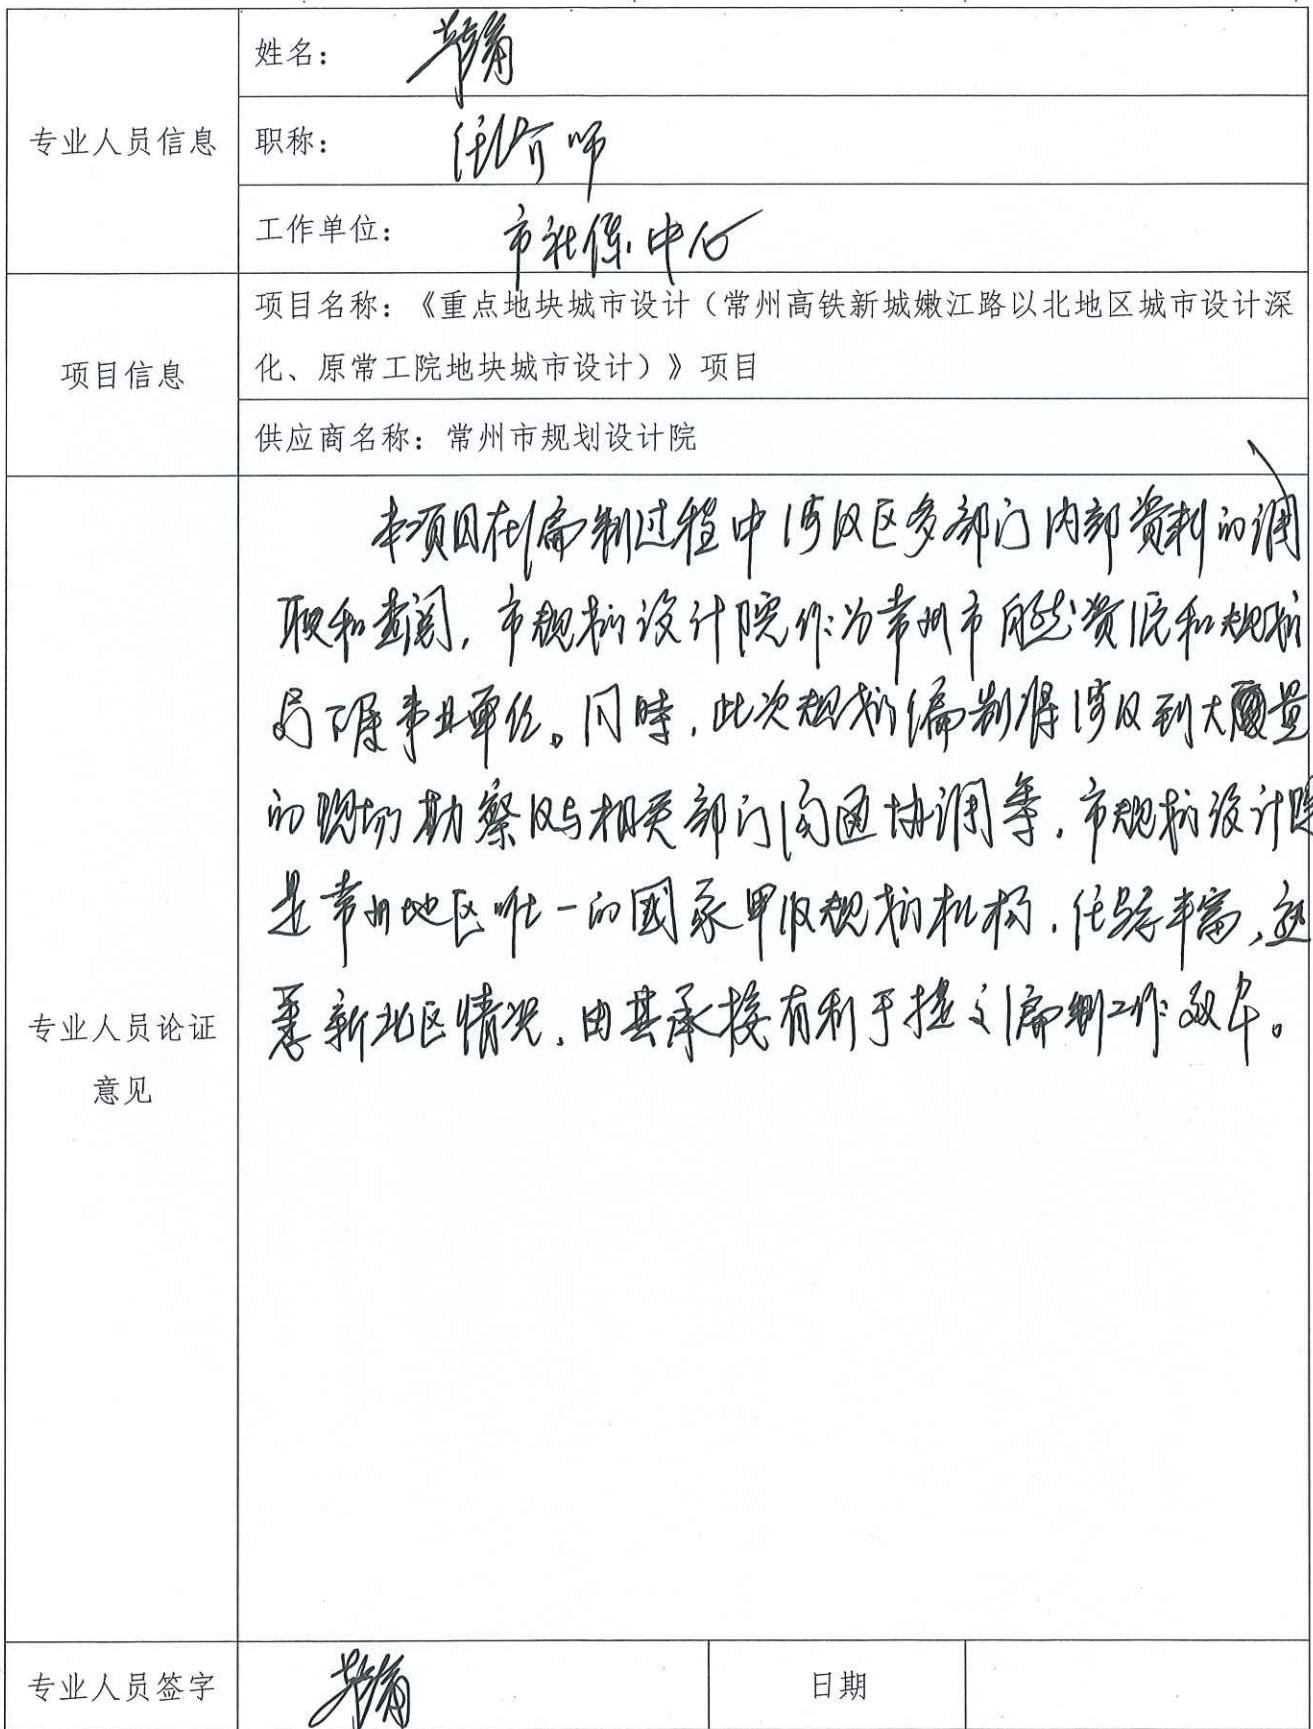 姓名：
专业人员信息
职称：经济师
工作单位：市社保中心
项目名称：《重点地块城市设计（常州高铁新城嫩江路以北地区城市设计深
化、原常工院地块城市设计）》项目
项目信息
供应商名称：常州市规划设计院
本项目在编制过程中涉及区多部门内部资料的调
取和查阅，市规划设计院作为常州市自然资源和规划
局下属事业单位。同时，此次规划编制得涉及到大量
的现场勘察及与相关部门沟通协调等，市规划设计院
是常州地区唯一的国家甲级规划机构，经验丰富，熟
悉新北区情况，由其承接有利于提高编制工作效率。
专业人员论证
意见
专业人员签字
日期